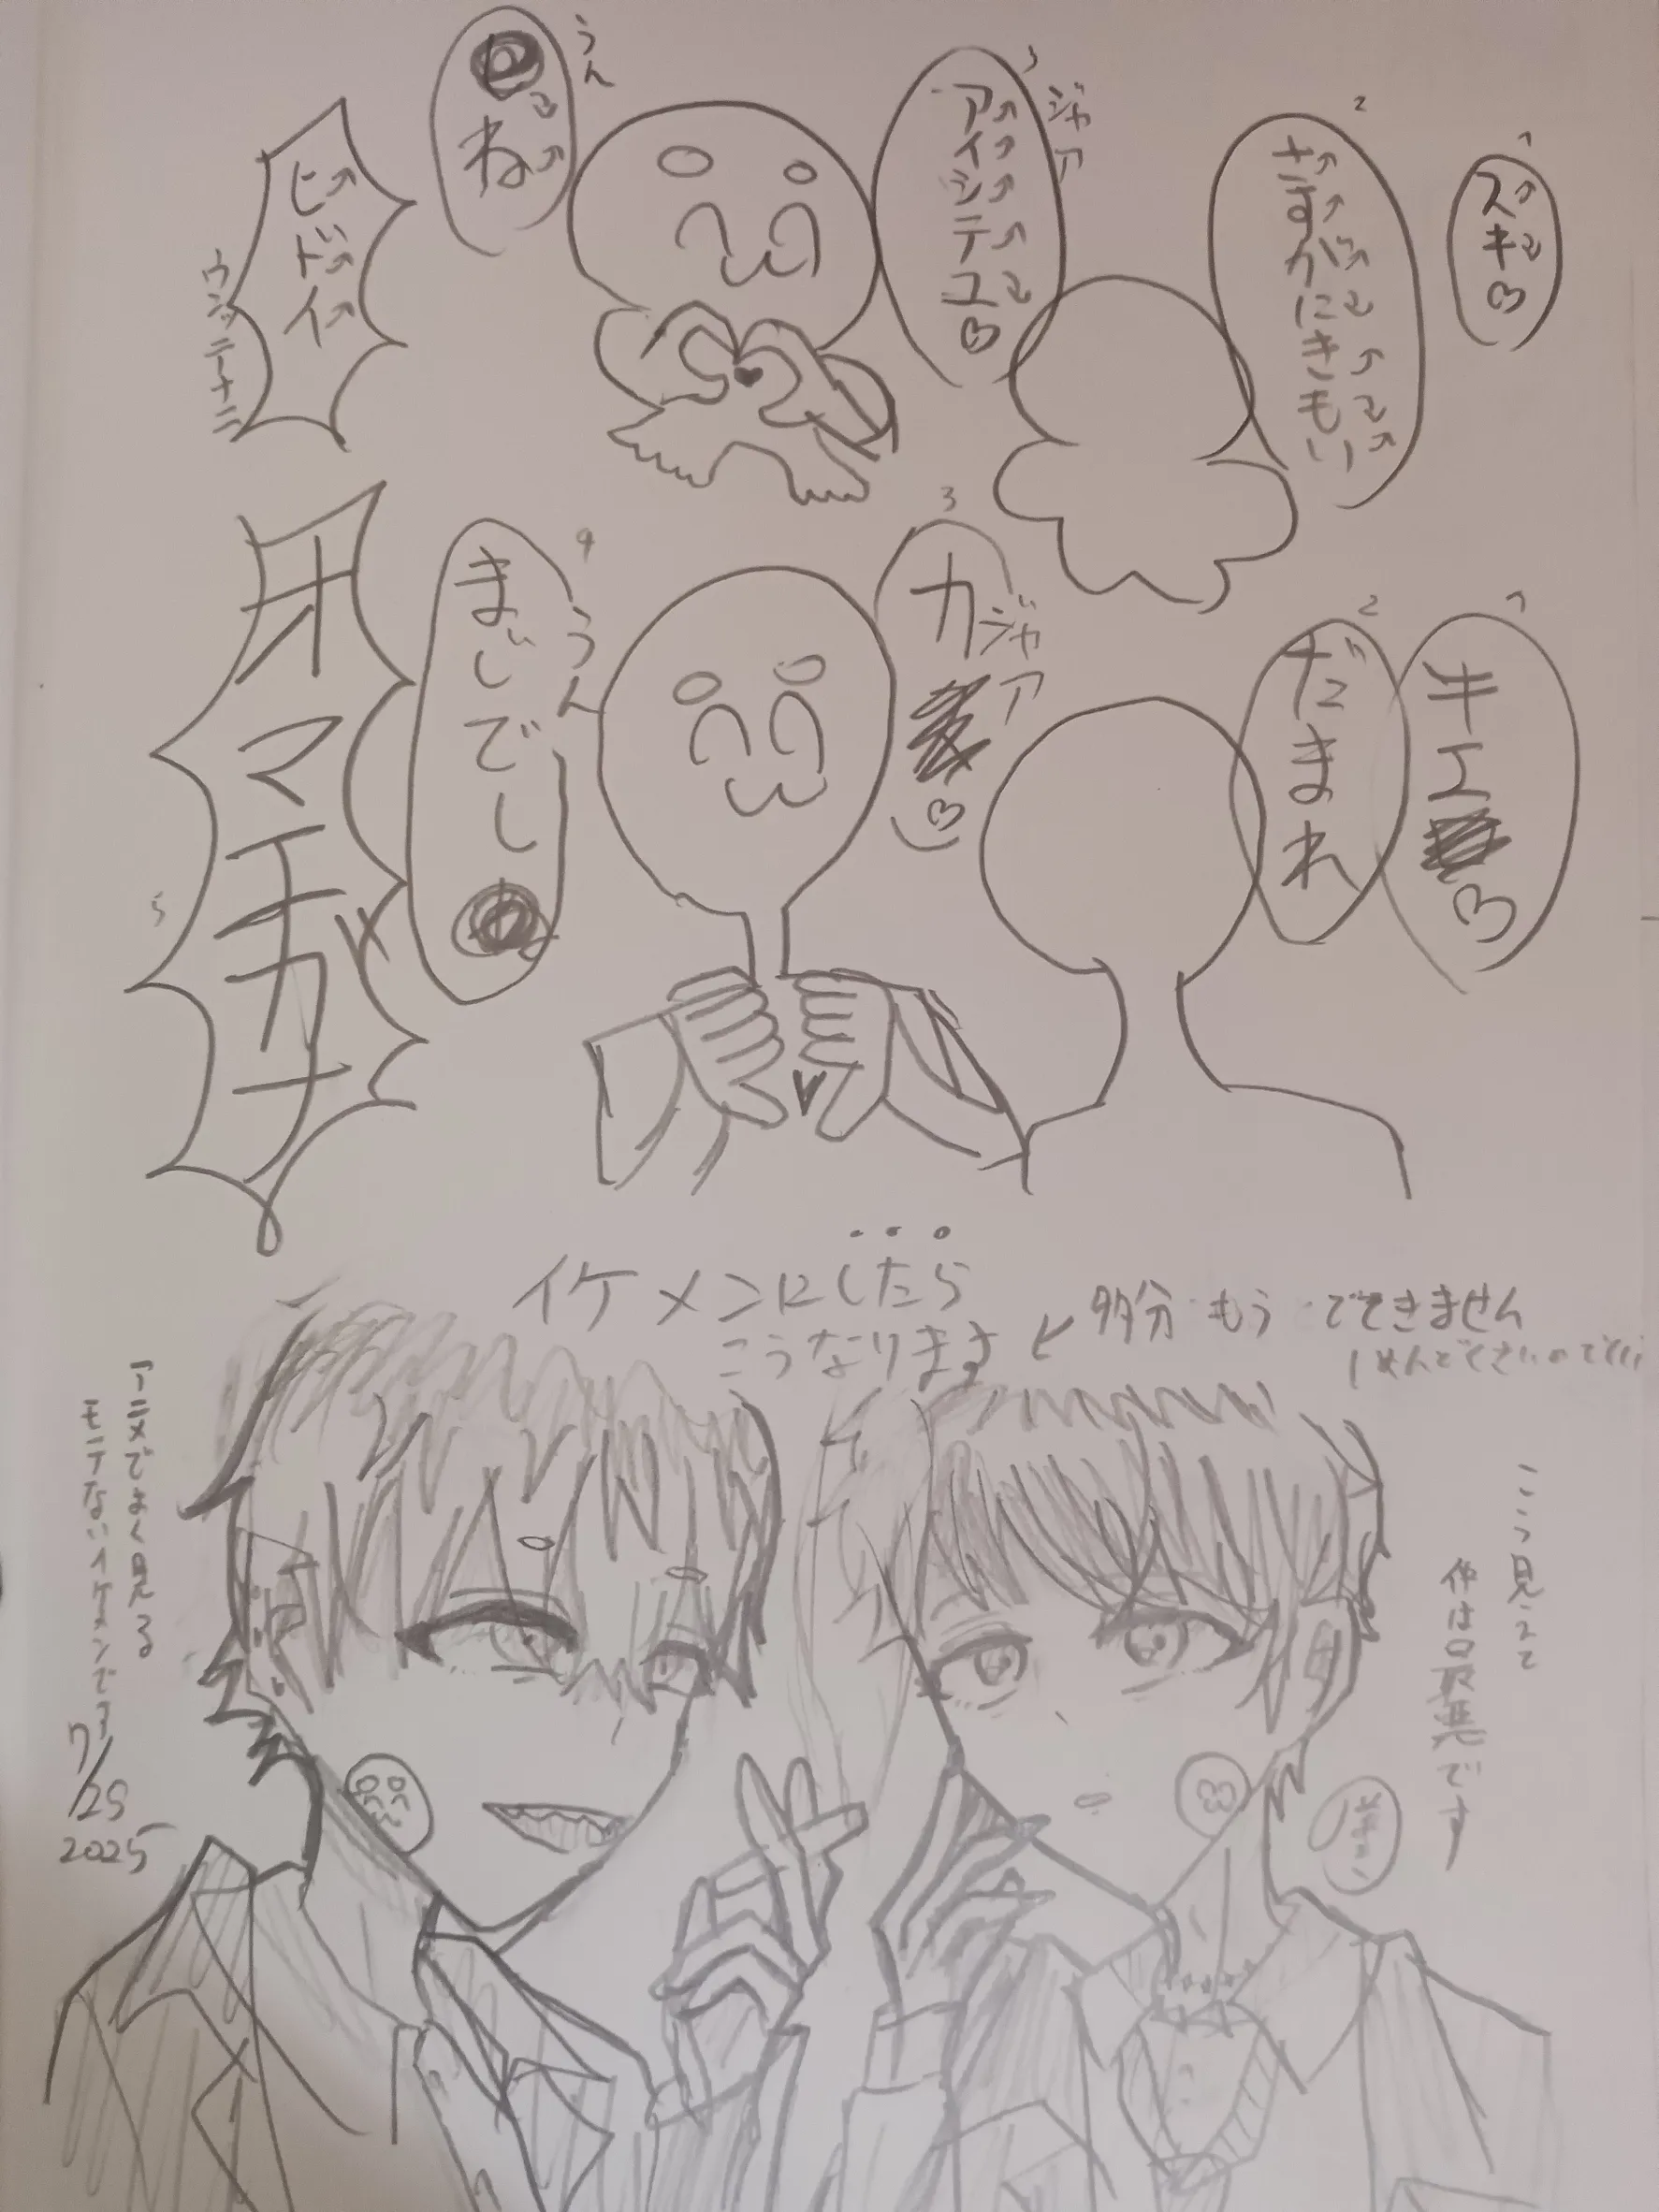 1
スキ♡
2
さすがにきもい
3
ジャア
アイシテユ♡
うん
ね
ヒドイ
ウンッテナニ
1
キエ♡
2
だまれ
3
ジャア
カ♡
4
うん
まじでし
5
オマエガナ
イケメンにしたら・・・
こうなります
多分もうできません
こう見えて
仲は最悪です
アニメでよく見る
モテないイケメンです
7/25
2025